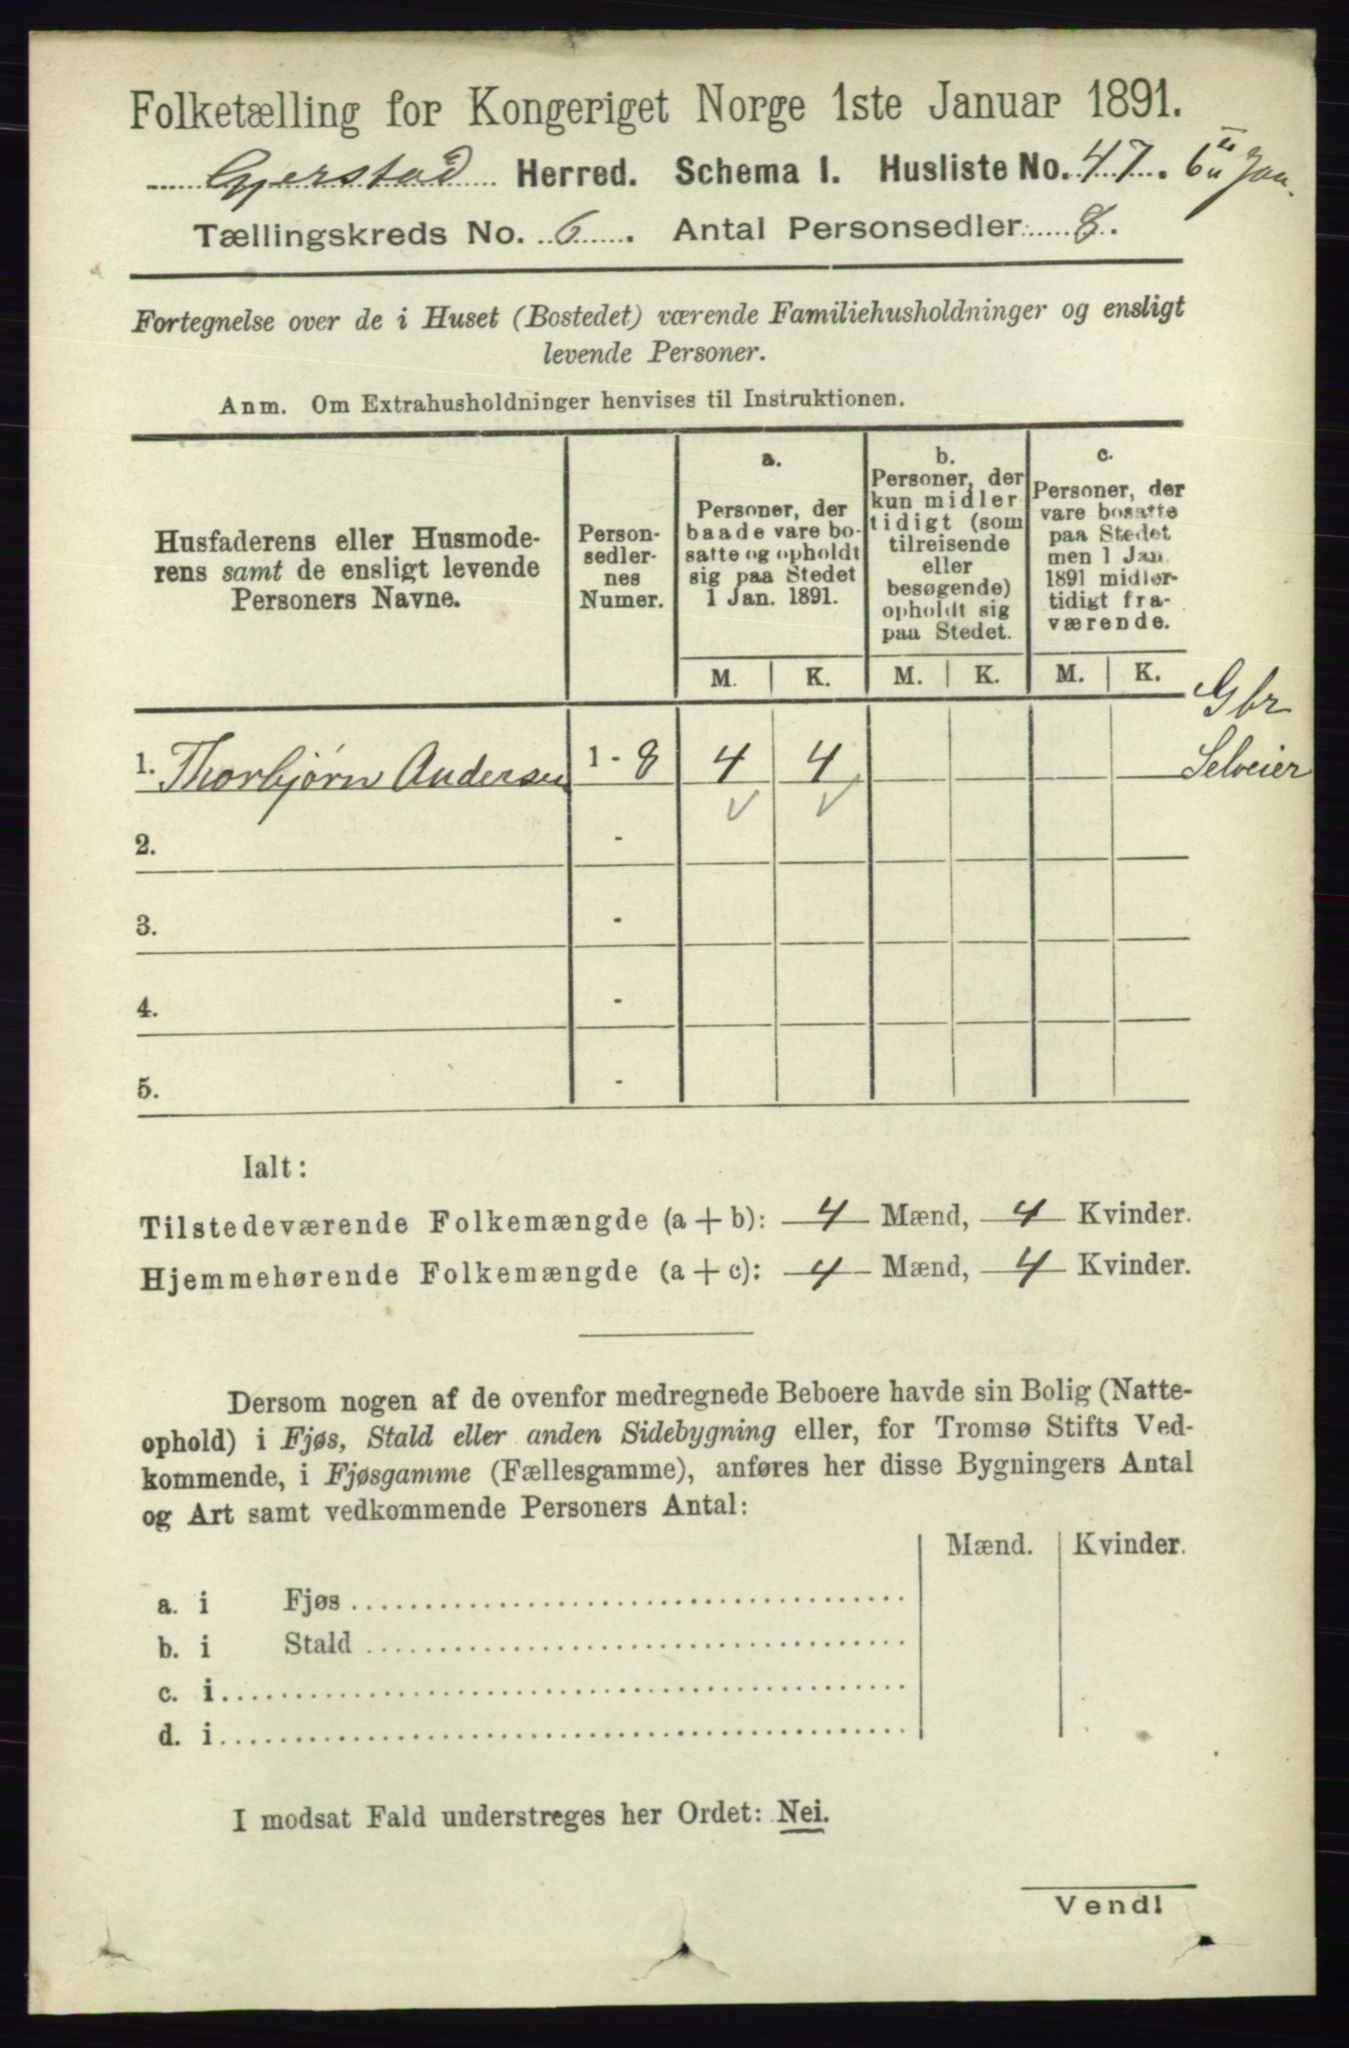 Folketælling for Kongeriget Norge 1ste Januar 1891.
Gjerstad Herred. Schema I. Husliste No. 47. 6 Jan.
Tællingskreds No. 6. Antal Personsedler 8.
Fortegnelse over de i Huset (Bostedet) værende Familiehusholdninger og ensligt
levende Personer.
Anm. Om Extrahusholdninger henvises til Instruktionen.
Husfaderens eller Husmode-
rens samt de ensligt levende
Personers Navne.
Person-
sedler-
nes
Numer.
a.
Personer, der
baade vare bo-
satte og opholdt
sig paa Stedet
1 Jan. 1891.
b.
Personer, der
kun midler
tidigt (som
tilreisende
eller
besøgende)
opholdt sig
paa Stedet.
c.
Personer, der
vare bosatte
paa Stedet
men 1 Jan.
1891 midler-
tidigt fra-
værende.
M. K. M. K. M. K.
Gbr
1. Thorbjørn Andersen 1 - 8 4 4 Selveier
2. -
3. -
4. -
5. -
Ialt:
Tilstedeværende Folkemængde (a + b): 4 Mænd, 4 Kvinder.
Hjemmehørende Folkemængde (a + c): 4 Mænd, 4 Kvinder.
Dersom nogen af de ovenfor medregnede Beboere havde sin Bolig (Natte-
ophold) i Fjøs, Stald eller anden Sidebygning eller, for Tromsø Stifts Ved-
kommende, i Fjøsgamme (Fællesgamme), anføres her disse Bygningers Antal
og Art samt vedkommende Personers Antal:
Mænd. Kvinder.
a. i Fjøs
b. i Stald
c. i
d. i
I modsat Fald understreges her Ordet: Nei.
Vend!